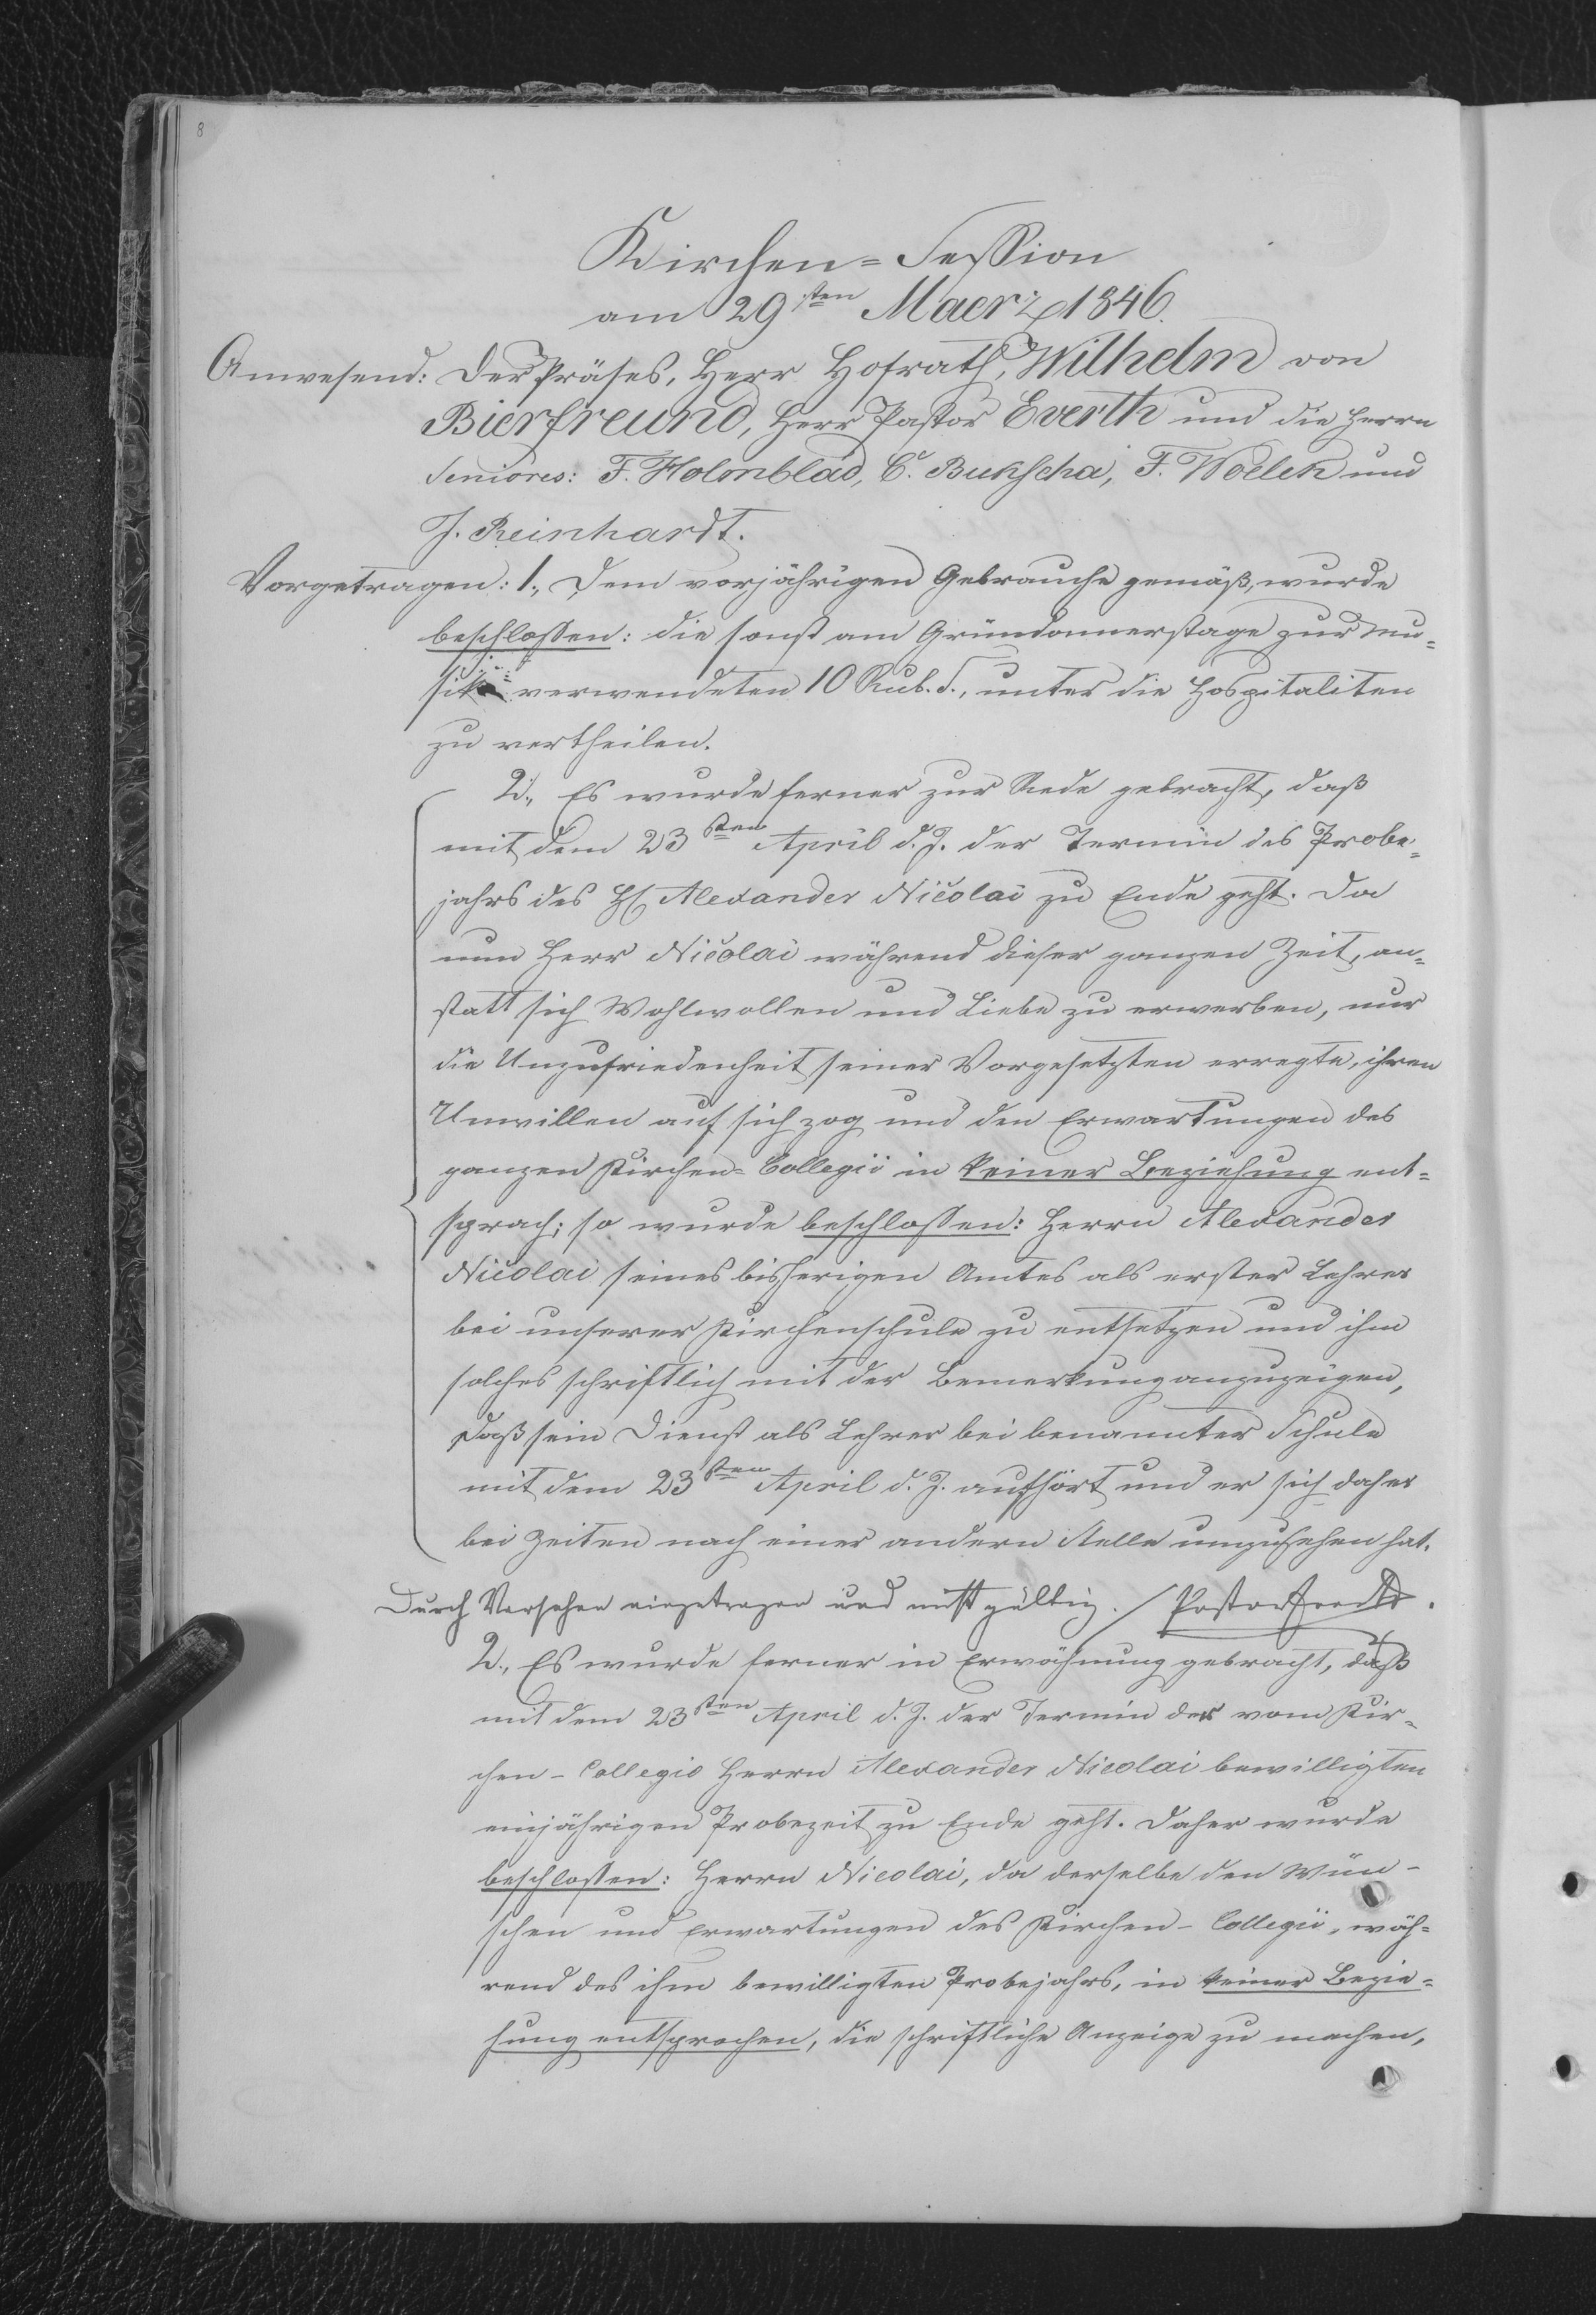 8
Kirchen=Session
am 29sten Maerz 1846.
Anwesend: Der Präses, Herr Hofrath, Wilhelm von
Bierfreund, Herr Pastor Everth und die Herrn
Seniores: F. Holmblad, C. Bukscha, F. Woelck und
J. Reinhardt.
Vorgetragen: 1., Dem vorjährigen Gebrauche gemäß, wurde
beschlossen: die sonst am Gründonnerstage zur Mu=
sik verwendeten 10 Rub. S., unter die Hospitaliten
zu vertheilen.
2., Es wurde ferner zur Rede gebracht, daß
mit dem 23sten April d. J. der Termin des Probe=
jahrs des H Alexander Nicolai zu Ende geht. Da
nun Herr Nicolai während dieser ganzen Zeit, an=
statt sich Wohlwollen und Liebe zu erwerben, nur
die Unzufriedenheit seiner Vorgesetzten erregte, ihren
Unwillen auf sich zog und den Erwartungen des
ganzen Kirchen=Collegii in keiner Beziehung ent=
sprach; so wurde beschlossen: Herrn Alexander
Nicolai seines bisherigen Amtes als erster Lehrer
bei unserer Kirchenschule zu entsetzen und ihm
solches schriftlich mit der Bemerkung anzuzeigen,
daß sein Dienst als Lehrer bei benannter Schule
mit dem 23sten April d. J. aufhört und er sich daher
bei Zeiten nach einer andern Stelle umzusehen hat.
Durch Versehen eingetragen und nicht gültig. / Pastor Everth.
2., Es wurde ferner in Erwähnung gebracht, daß
mit dem 23sten April d. J. der Termin der vom Kir=
chen-Collegio Herrn Alexander Nicolai bewilligten
einjährigen Probezeit zu Ende geht. Daher wurde
beschlossen: Herrn Nicolai, da derselbe den Wün-
schen und Erwartungen des Kirchen-Collegii, wäh=
rend des ihm bewilligten Probejahrs, in keiner Bezie=
hung entsprochen, die schriftliche Anzeige zu machen,